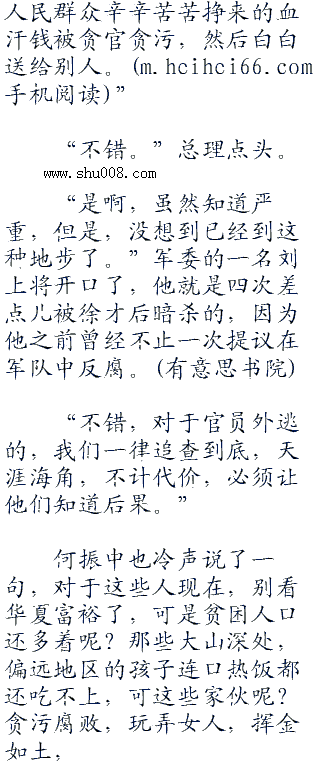 人民群众辛辛苦苦挣来的血
汗钱被贪官贪污，然后白白
送给别人。(m.hcihci66.com
手机阅读)”
“不错。”总理点头。
www.shu008.com
“是啊，虽然知道严
重，但是，没想到已经到这
种地步了。”军委的一名刘
上将开口了，他就是四次差
点儿被徐才后暗杀的，因为
他之前曾经不止一次提议在
军队中反腐。(有意思书院)
“不错，对于官员外逃
的，我们一律追查到底，天
涯海角，不计代价，必须让
他们知道后果。”
何振中也冷声说了一
句，对于这些人现在，别看
华夏富裕了，可是贫困人口
还多着呢？那些大山深处，
偏远地区的孩子连口热饭都
还吃不上，可这些家伙呢？
贪污腐败，玩弄女人，挥金
如土，